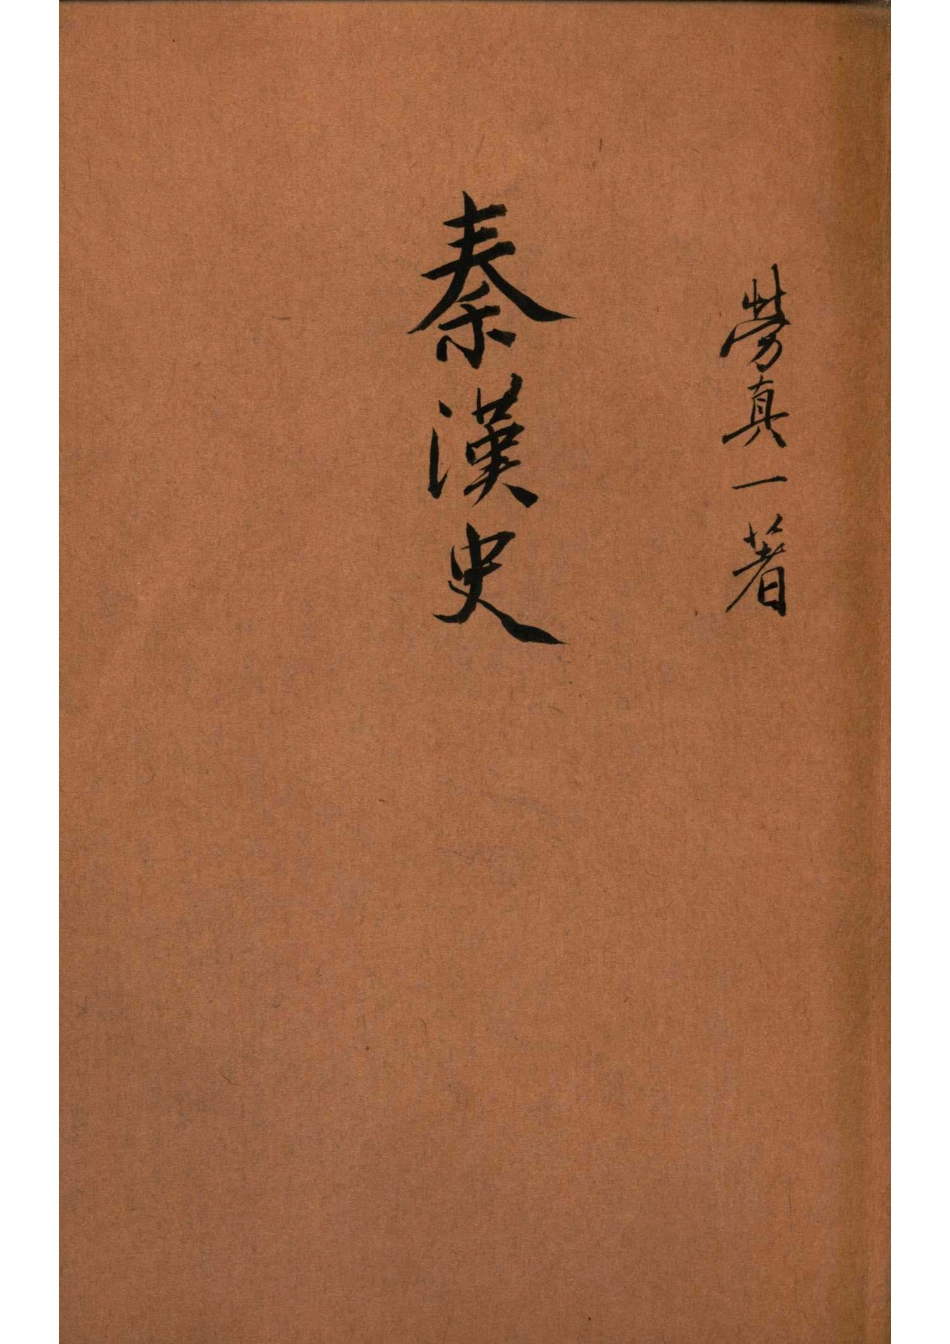 勞真一著
秦漢史